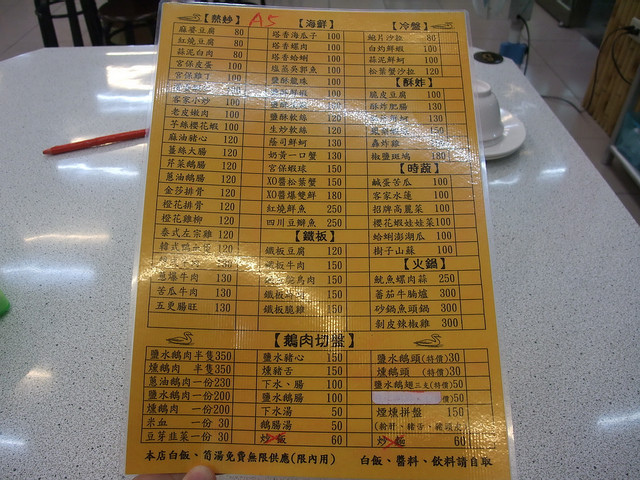 【熱炒】
麻婆豆腐 80
紅燒豆腐 80
蒜泥白肉 80
宮保皮蛋 100
宮保雞丁 100
客家小炒 100
老皮嫩肉 100
芋絲櫻花蝦 100
麻油豬心 120
薑絲大腸 120
芹菜鵝腸 120
蔥油鵝腸 120
金莎排骨 120
橙花排骨 120
橙花雞柳 120
泰式左宗雞 120
蔥爆牛肉 130
苦瓜牛肉 130
五更腸旺 130
A5
【海鮮】
塔香海瓜子 100
塔香螺肉 100
塔香蛤蜊 100
塩蒸吳郭魚 100
鹽酥龍珠 100
鹽酥軟絲 120
生炒軟絲 120
蔭司鮮蚵 130
奶黃一口蟹 130
宮保蝦球 150
XO醬松葉蟹 150
XO醬爆雙鮮 180
紅燒鮮魚 250
四川豆瓣魚 250
【鐵板】
鐵板豆腐 120
鐵板牛肉 150
150
150
鐵板脆雞 150
【冷盤】
鮑片沙拉 80
白灼鮮蝦 100
蒜泥鮮蚵 100
松葉蟹沙拉 120
【酥炸】
脆皮豆腐 100
酥炸肥腸 130
130
150
椒鹽斑鳩 180
【時蔬】
鹹蛋苦瓜 100
客家水蓮 100
招牌高麗菜 100
櫻花蝦娃娃菜 100
蛤蜊澎湖瓜 100
樹子山蘇 100
【火鍋】
魷魚螺肉蒜 250
蕃茄牛腩爐 300
砂鍋魚頭鍋 300
剝皮辣椒雞 300
【鵝肉切盤】
鹽水鵝肉 半隻350
燻鵝肉 半隻350
蔥油鵝肉 一份230
鹽水鵝肉 一份200
燻鵝肉 一份200
米血 一份30
豆芽韭菜 一份30
鹽水豬心 150
燻豬舌 150
下水、腸 100
鹽水鵝腸 100
下水湯 50
鵝腸湯 50
炒飯 60
鹽水鵝頭(特價)30
燻鵝頭(特價)30
鹽水鵝翅三支(特價)50
價)50
煙燻拼盤 150
炒麵 60
本店白飯、筍湯免費無限供應(限內用)
白飯、醬料、飲料請自取